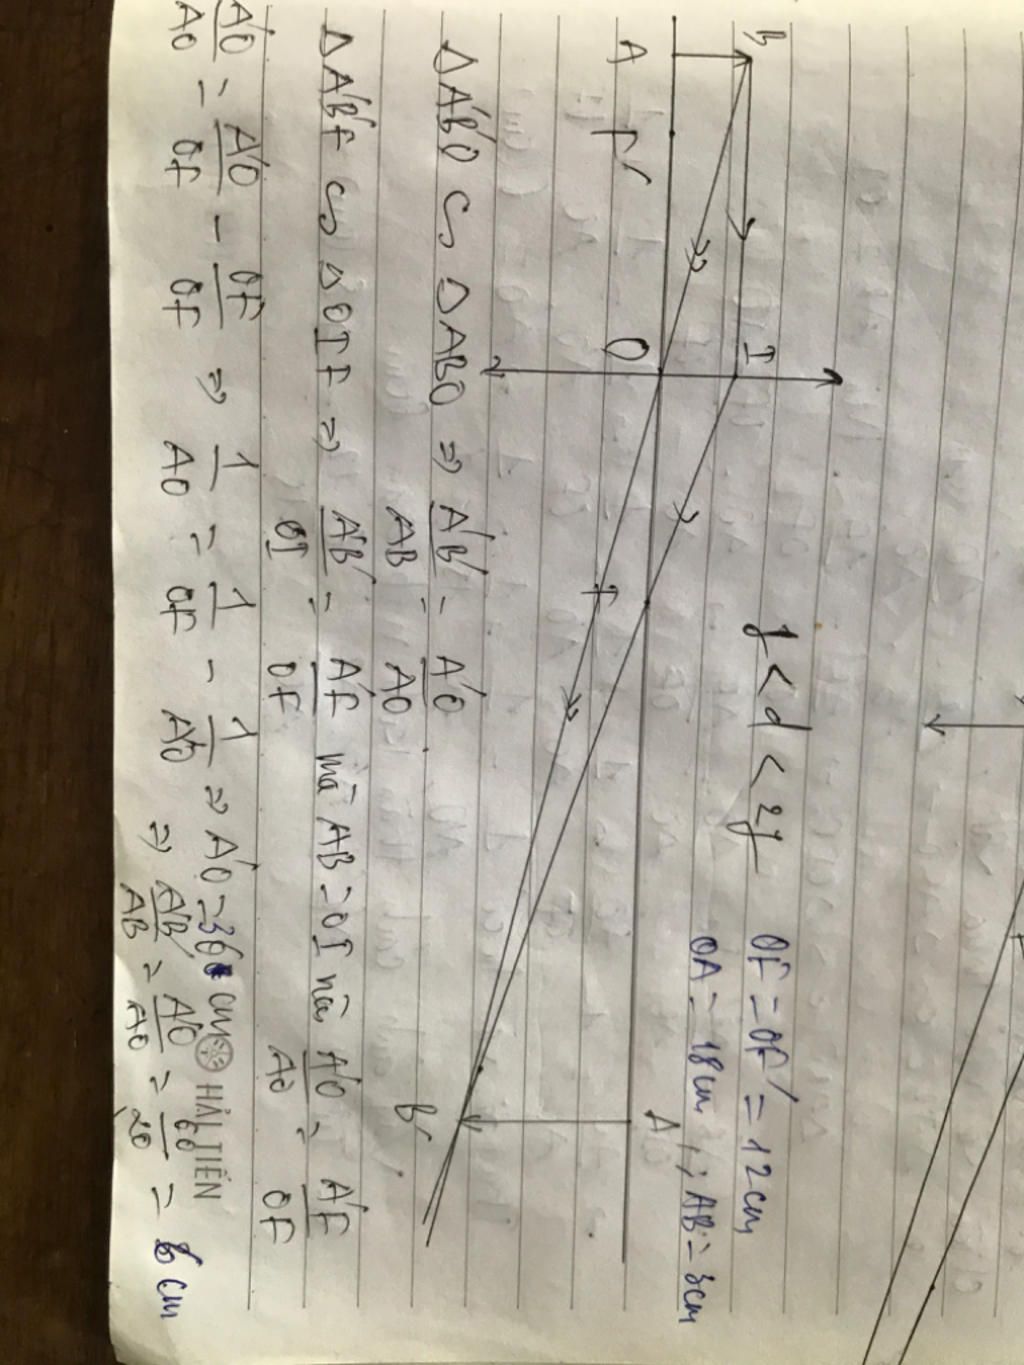 f < d < 2f
OF = OF' = 12cm
OA = 18cm ; AB = 3cm
B
I
A
F'
O
F
A'
B'
ΔA'B'O ∽ ΔABO ⇒ A'B'/AB = A'O/AO
ΔA'B'F ∽ ΔOIF ⇒ A'B'/OI = A'F/OF mà AB = OI nên A'O/AO = A'F/OF
A'O/AO = A'O/OF - OF/OF ⇒ 1/AO = 1/OF - 1/A'O ⇒ A'O = 36 cm
⇒ A'B'/AB = A'O/AO = 60/20 = 6 cm
HẢI TIẾN